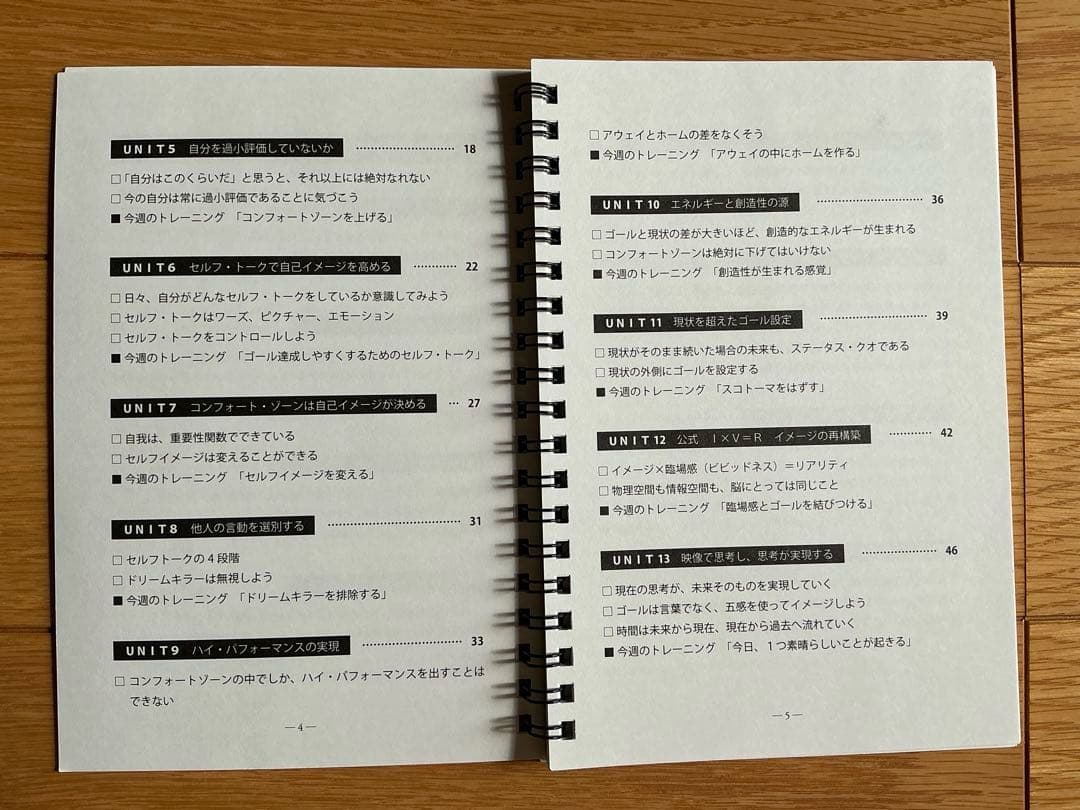 UNIT5 自分を過小評価していないか ………………………… 18
□「自分はこのくらいだ」と思うと、それ以上には絶対なれない
□今の自分は常に過小評価であることに気づこう
■今週のトレーニング 「コンフォートゾーンを上げる」
UNIT6 セルフ・トークで自己イメージを高める ………… 22
□日々、自分がどんなセルフ・トークをしているか意識してみよう
□セルフ・トークはワーズ、ピクチャー、エモーション
□セルフ・トークをコントロールしよう
■今週のトレーニング 「ゴール達成しやすくするためのセルフ・トーク」
UNIT7 コンフォート・ゾーンは自己イメージが決める … 27
□自我は、重要性関数でできている
□セルフイメージは変えることができる
■今週のトレーニング 「セルフイメージを変える」
UNIT8 他人の言動を選別する ………………………………… 31
□セルフトークの4段階
□ドリームキラーは無視しよう
■今週のトレーニング 「ドリームキラーを排除する」
UNIT9 ハイ・パフォーマンスの実現 ………………………… 33
□コンフォートゾーンの中でしか、ハイ・パフォーマンスを出すことは
できない
―4―
□アウェイとホームの差をなくそう
■今週のトレーニング 「アウェイの中にホームを作る」
UNIT10 エネルギーと創造性の源 ………………………… 36
□ゴールと現状の差が大きいほど、創造的なエネルギーが生まれる
□コンフォートゾーンは絶対に下げてはいけない
■今週のトレーニング 「創造性が生まれる感覚」
UNIT11 現状を超えたゴール設定 ………………………… 39
□現状がそのまま続いた場合の未来も、ステータス・クオである
□現状の外側にゴールを設定する
■今週のトレーニング 「スコトーマをはずす」
UNIT12 公式 I×V=R イメージの再構築 ………… 42
□イメージ×臨場感（ビビッドネス）＝リアリティ
□物理空間も情報空間も、脳にとっては同じこと
■今週のトレーニング 「臨場感とゴールを結びつける」
UNIT13 映像で思考し、思考が実現する ………………… 46
□現在の思考が、未来そのものを実現していく
□ゴールは言葉でなく、五感を使ってイメージしよう
□時間は未来から現在、現在から過去へ流れていく
■今週のトレーニング 「今日、1つ素晴らしいことが起きる」
―5―